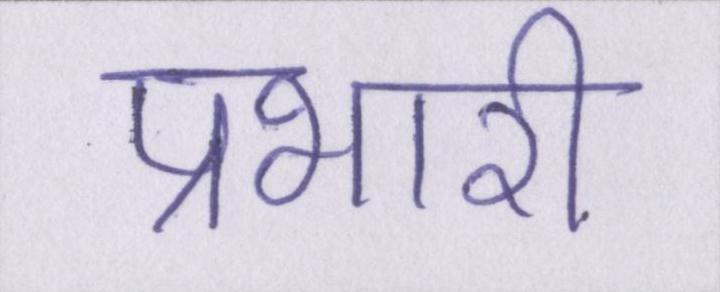 प्रभारी